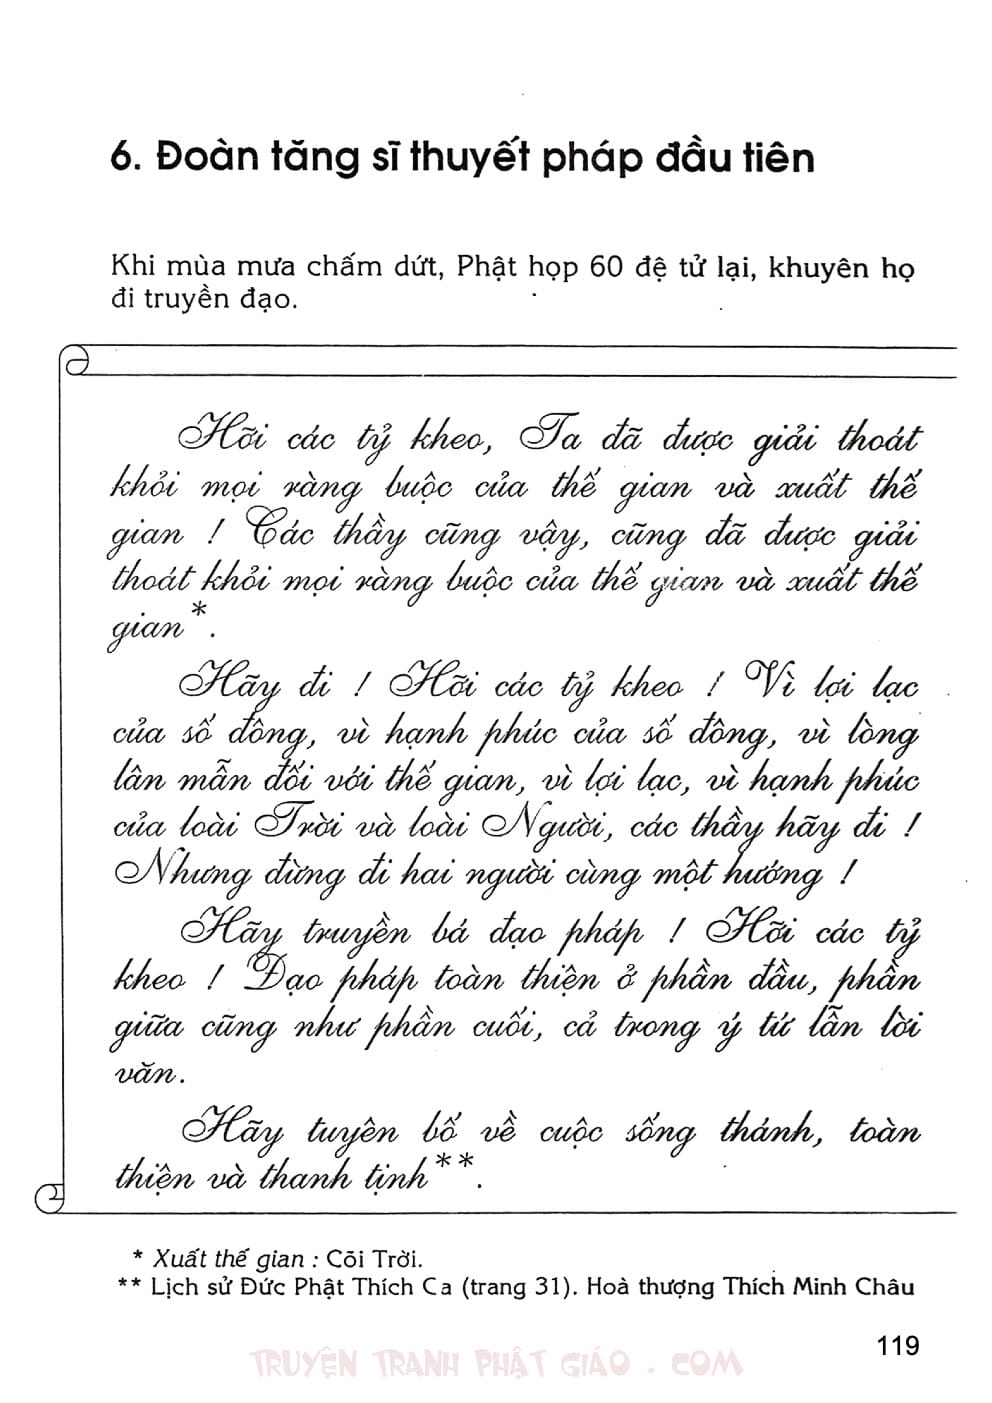 6. Đoàn tăng sĩ thuyết pháp đầu tiên
Khi mùa mưa chấm dứt, Phật họp 60 đệ tử lại, khuyên họ
đi truyền đạo.
Hỡi các tỷ kheo, Ta đã được giải thoát
khỏi mọi ràng buộc của thế gian và xuất thế
gian ! Các thầy cũng vậy, cũng đã được giải
thoát khỏi mọi ràng buộc của thế gian và xuất thế
gian*.
Hãy đi ! Hỡi các tỷ kheo ! Vì lợi lạc
của số đông, vì hạnh phúc của số đông, vì lòng
lân mẫn đối với thế gian, vì lợi lạc, vì hạnh phúc
của loài Trời và loài Người, các thầy hãy đi !
Nhưng đừng đi hai người cùng một hướng !
Hãy truyền bá đạo pháp ! Hỡi các tỷ
kheo ! Đạo pháp toàn thiện ở phần đầu, phần
giữa cũng như phần cuối, cả trong ý tứ lẫn lời
văn.
Hãy tuyên bố về cuộc sống thánh, toàn
thiện và thanh tịnh**.
* Xuất thế gian : Cõi Trời.
** Lịch sử Đức Phật Thích Ca (trang 31). Hoà thượng Thích Minh Châu
119
TRUYỆN TRANH PHẬT GIÁO . COM